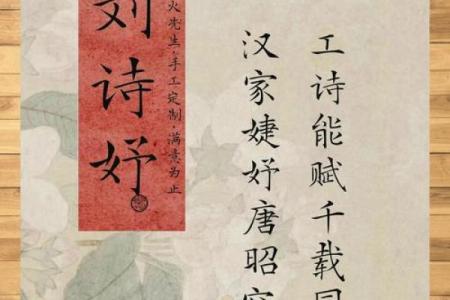 工诗能赋千载
汉家婕妤唐昭
火先生·手工定制·满意为止
刘诗妤